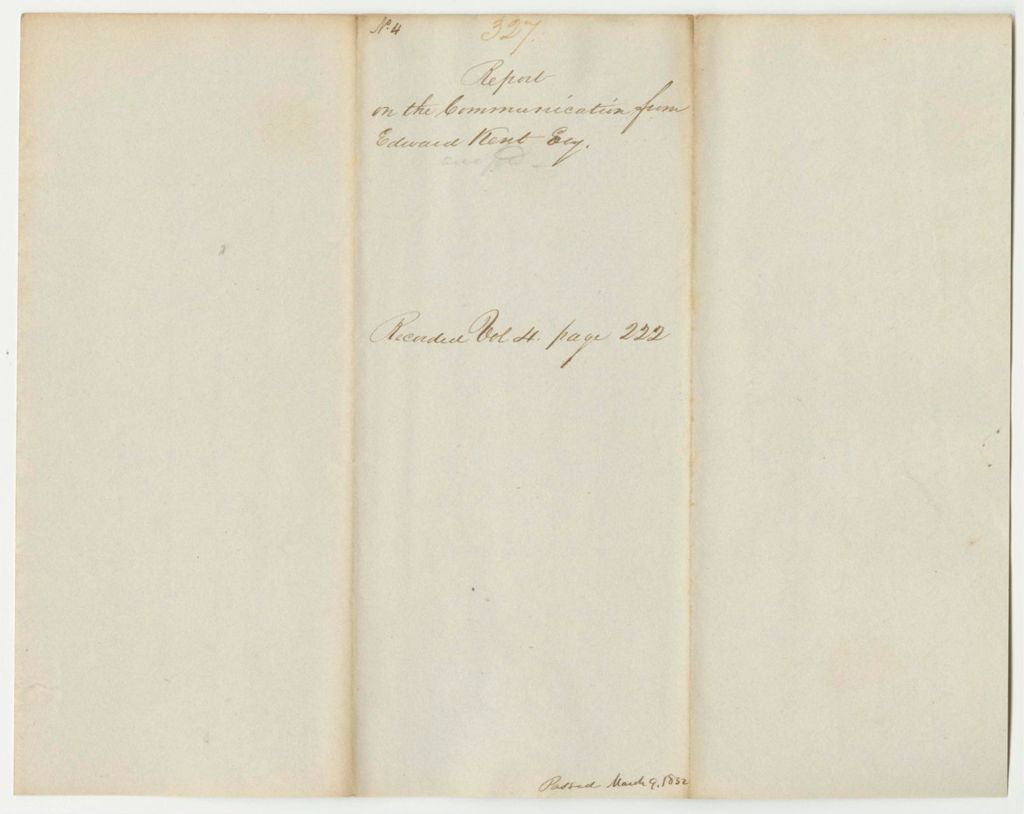 No. 4
327.
Report
on the Communication from
Edward Kent Esq.
Recorded Vol 4. page 222
Passed March 9, 1832